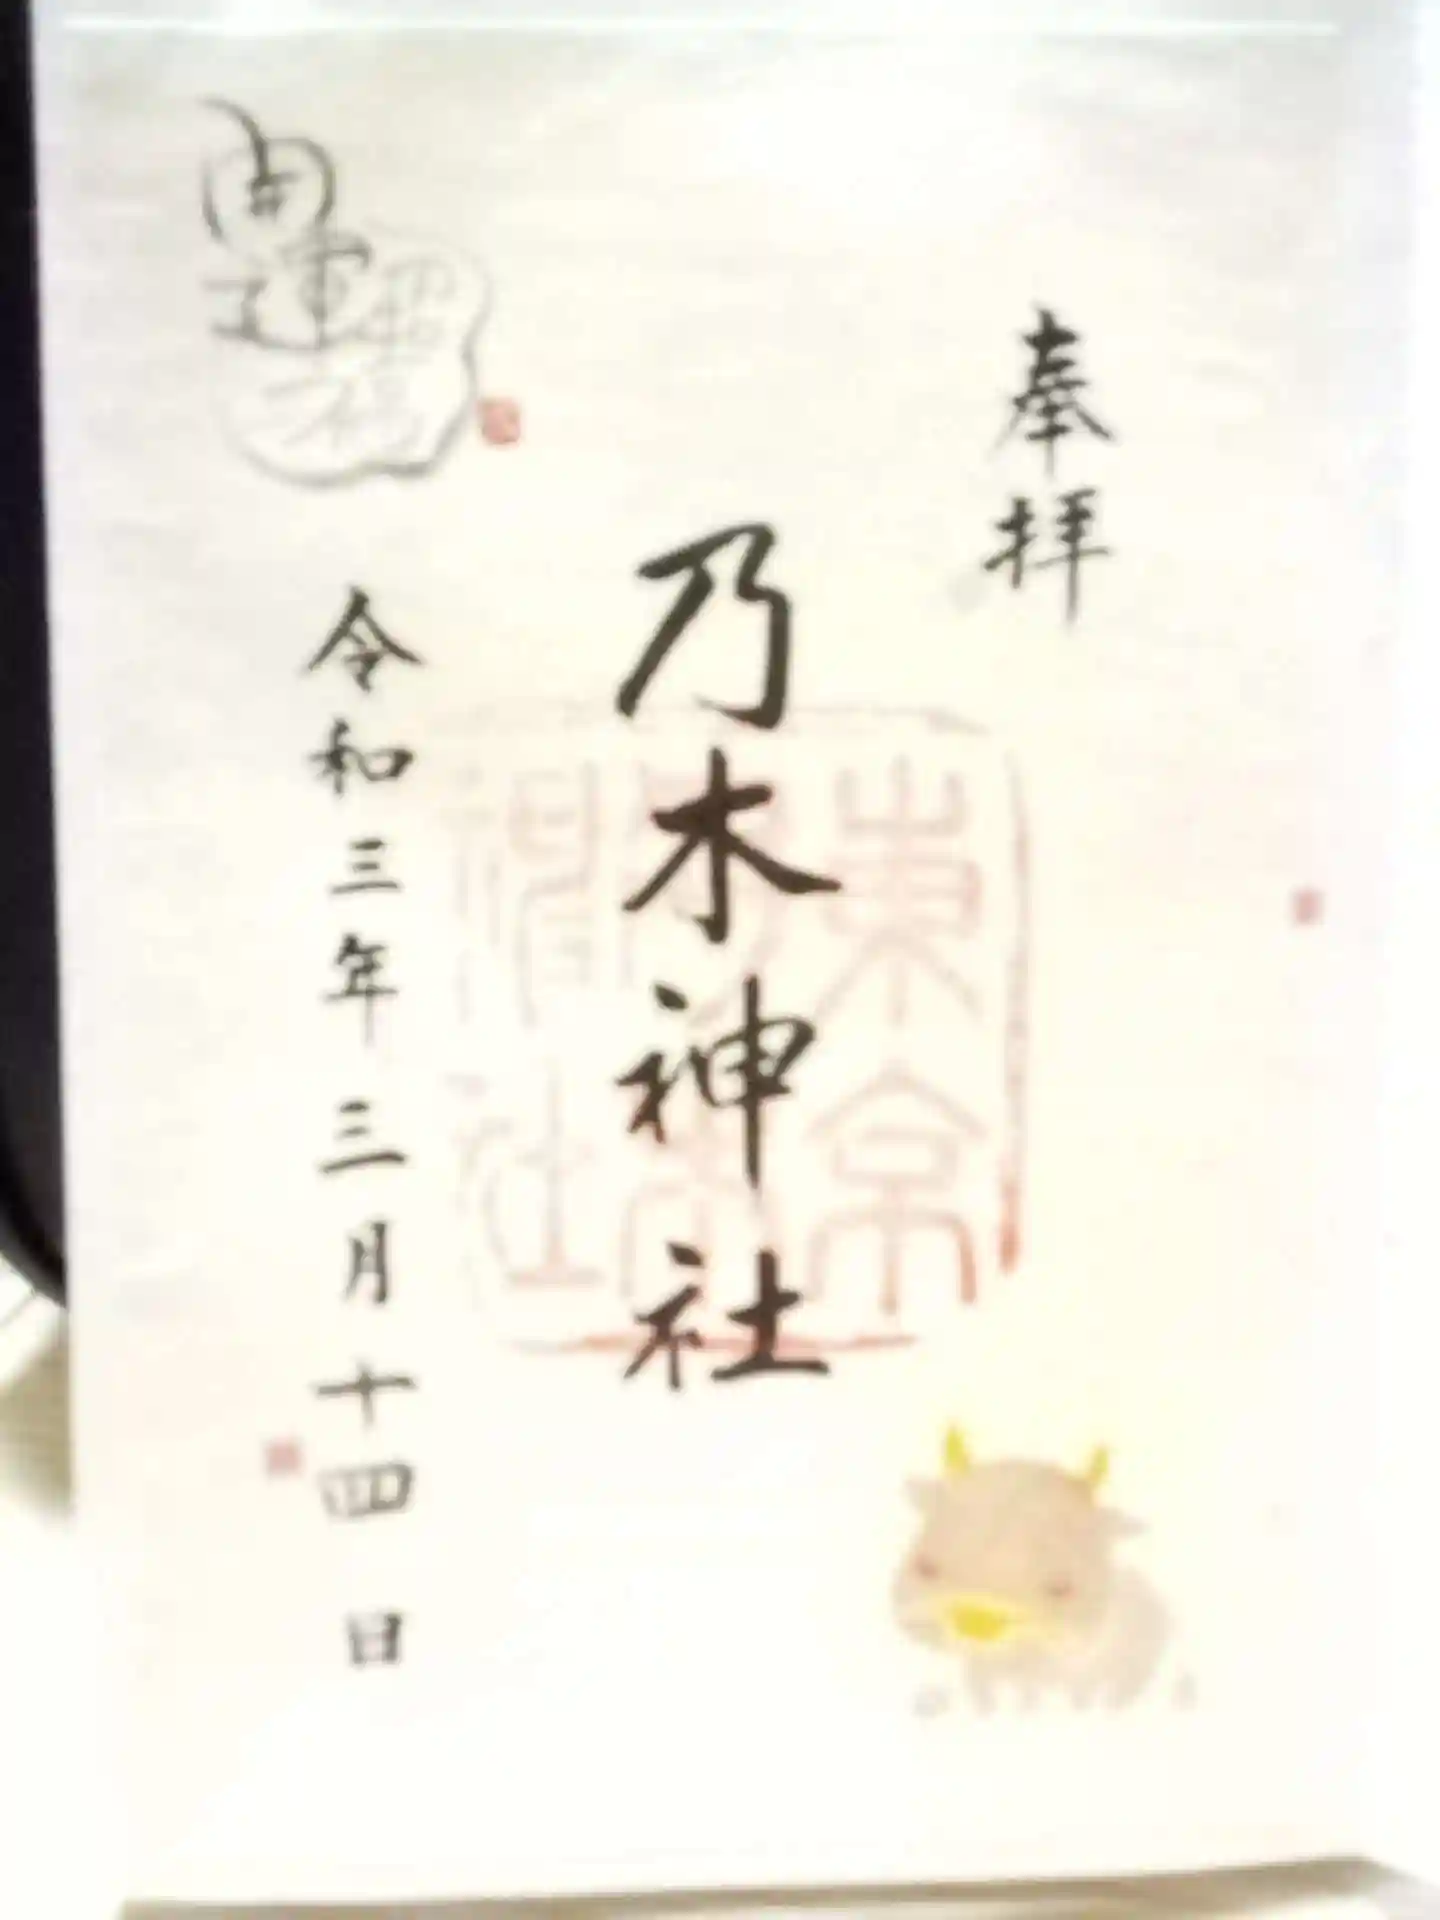 奉拝
乃木神社
東京
神社
令和三年三月十四日
開運